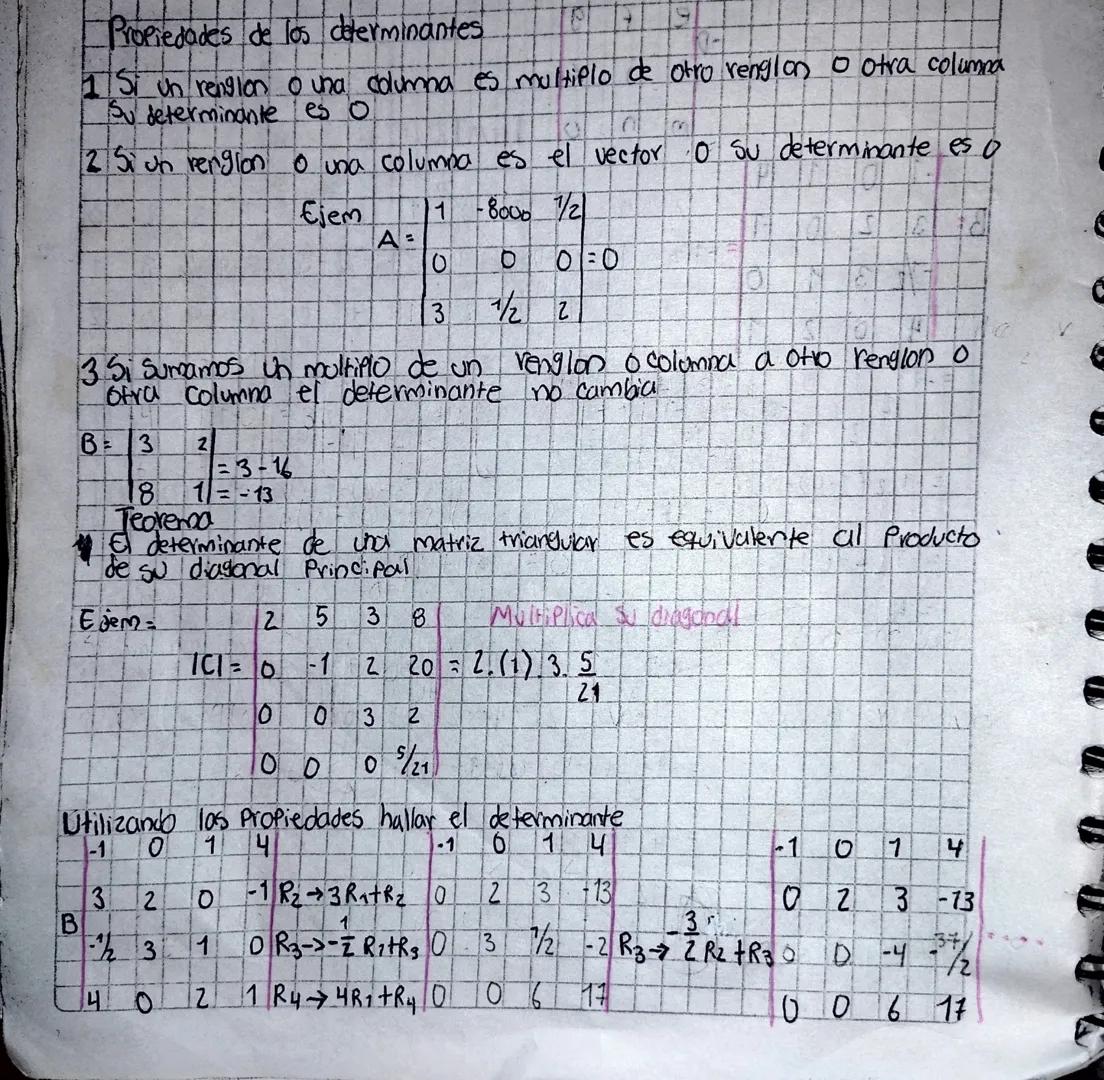 Propiedades de los determinantes
1 Si un renglon o una columna es multiplo de otro renglon o otra columna
Su determinante es 0
2 Si un renglon o una columna es el vector 0 su determinante es 0
Ejem
A = | 1 -8000 1/2 |
| 0 0 0 | = 0
| 3 1/2 2 |
3 Si sumamos un multiplo de un renglon o columna a otro renglon o
otra columna el determinante no cambia
B = | 3 2 | = 3 - 16
| 8 1 | = -13
Teorema
El determinante de una matriz triangular es equivalente al Producto
de su diagonal Principal
Ejem = | 2 5 3 8 | Multiplica su diagonal
|C| = | 0 -1 2 20 | = 2.(1).3. 5/21
| 0 0 3 2 |
| 0 0 0 5/21 |
Utilizando las Propiedades hallar el determinante
| -1 0 1 4 | | -1 0 1 4 | | -1 0 1 4 |
| 3 2 0 -1 | R2 → 3R1+R2 | 0 2 3 -13 | | 0 2 3 -13 |
B | -1/2 3 1 0 | R3 -> -1/2 R1+R3 | 0 3 1/2 -2 | R3 → -3/2 R2+R3 | 0 0 -4 -37/2 |
| 4 0 2 1 | R4 → 4R1+R4 | 0 0 6 17 | | 0 0 6 17 |